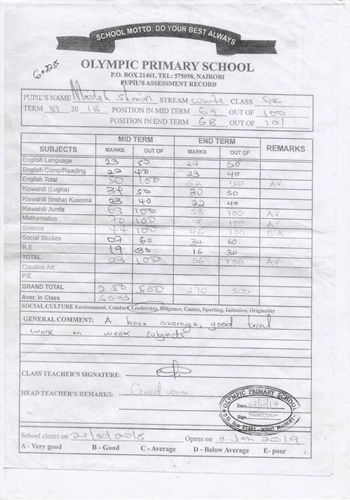 SCHOOL MOTTO: DO YOUR BEST ALWAYS
OLYMPIC PRIMARY SCHOOL
P.O. BOX 21461, TEL: 575058, NAIROBI
PUPIL'S ASSESSMENT RECORD
PUPIL'S NAME STREAM white CLASS Six
TERM 20 18 POSITION IN MID TERM 59 OUT OF 100
POSITION IN END TERM 68 OUT OF 101
SUBJECTS MID TERM END TERM REMARKS
MARKS OUT OF MARKS OUT OF
English Language 23 50 24 50
English Comp/Reading 40 23 40
English Total 50 100 52 100 AV
Kiswahili (Lugha) 34 50 30 50
Kiswahili (Insha) Kusoma 23 40 22 40
Kiswahili Jumla 63 100 58 100 AV
Mathematics 70 100 58 100 AV
Science 44 100 46 100 B.A
Social Studies 07 60 34 60
R.E 19 30 16 30
TOTAL 23 100 56 100 AV
Creative Art
P.E.
GRAND TOTAL 250 500 270 500
Aver. in Class
SOCIAL CULTURE Environment, Conduct, Leadership, Diligence, Games, Sporting, Initiative, Originality
GENERAL COMMENT: A bove average, good trial
work on weak subjects
CLASS TEACHER'S SIGNATURE:
HEAD TEACHER'S REMARKS: Good work
OLYMPIC PRIMARY SCHOOL
Date
Sign
P.O. Box 21461 - 00505 Nairobi
School closes on Opens on Jan 2019
A - Very good B - Good C - Average D - Below Average E- poor